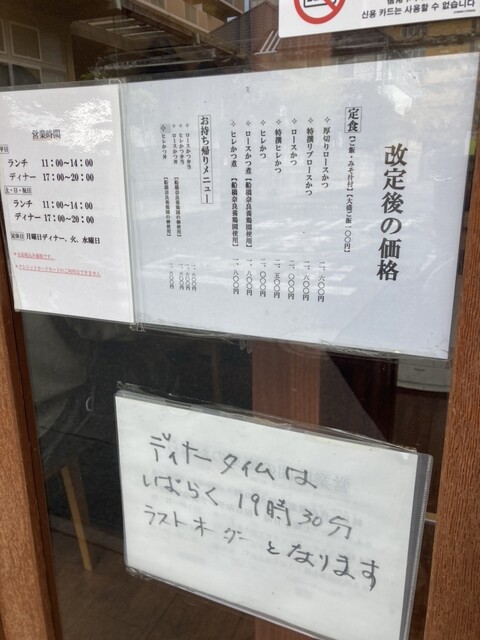 신용 카드는 사용할 수 없습니다
営業時間
平日
ランチ 11:00~14:00
ディナー 17:00~20:00
土・日・祝日
ランチ 11:00~14:00
ディナー 17:00~20:00
定休日 月曜日ディナー、火、水曜日
改定後の価格
定食【ご飯・みそ汁付】【大盛ご飯一〇〇円】
厚切りロースかつ 二、六〇〇円
特撰リブロースかつ
ロースかつ
特撰ヒレかつ
ヒレかつ
ロースかつ煮【船橋奈良養鶏園使用】
ヒレかつ煮【船橋奈良養鶏園使用】
お持ち帰りメニュー
ロースかつ弁当
ヒレかつ弁当
ロースかつ丼
ヒレかつ丼
ディナータイムは
しばらく 19時30分
ラストオーダー となります